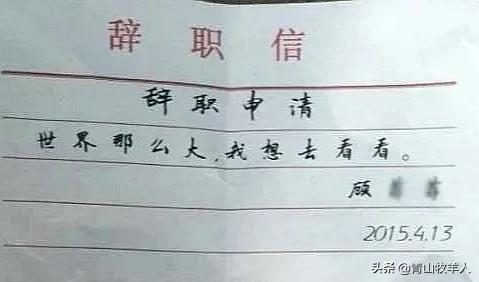 辞职信
辞职申请
世界那么大，我想去看看。
顾
2015.4.13
头条@青山牧羊人